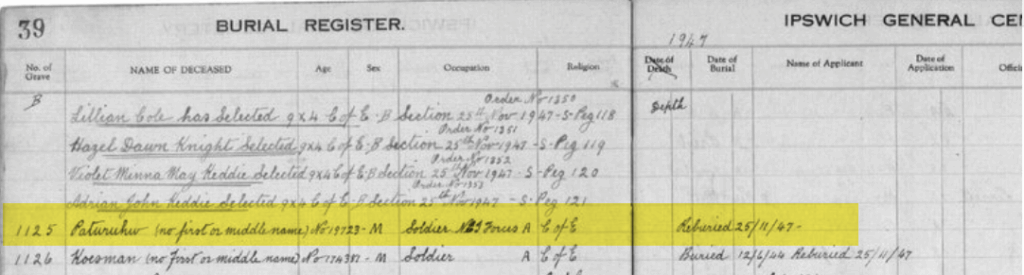 39 BURIAL REGISTER. IPSWICH GENERAL
1947
No. of Grave NAME OF DECEASED Age Sex Occupation Religion Date of Death Date of Burial Name of Applicant Date of Application
Order No 1350
B Lillian Cole has Selected 9x4 C of E - B Section 25th Nov 1947 - S - Peg 118 Depth
Order No 1351
Hazel Dawn Knight Selected 9x4 C of E - B Section 25th Nov 1947 - S - Peg 119
Order No 1352
Violet Minna May Keddie Selected 9x4 C of E - B Section 25th Nov 1947 - S - Peg 120
Order No 1353
Adrian John Keddie Selected 9x4 C of E - B Section 25th Nov 1947 - S - Peg 121
1125 Paturuhw (no first or middle name) No 19723 - M Soldier Forces A C of E Reburied 25/11/47 -
1126 Koesman (no first or middle name) No 174387 - M Soldier A C of E Buried 12/6/44 Reburied 25/11/47